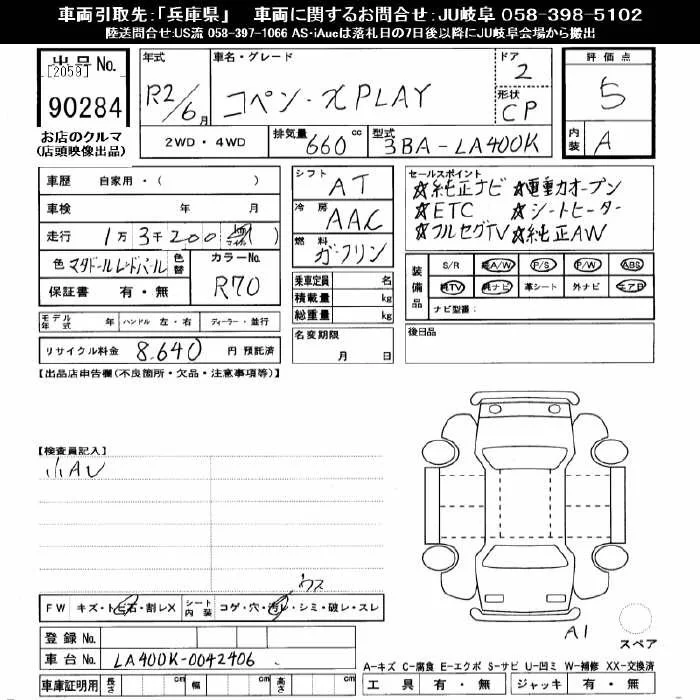 車両引取先:「兵庫県」 車両に関するお問合せ:JU岐阜 058-398-5102
陸送問合せ:US流 058-397-1066 AS-iAucは落札日の7日後以降にJU岐阜会場から搬出
出品No.
[2059]
90284
お店のクルマ
(店頭映像出品)
年式 R2/6月
車名・グレード コペン・X PLAY
ドア 2
形状 CP
評価点 5
内装 A
2WD・4WD 排気量 660 cc 型式 3BA-LA400K
車歴 自家用・( )
車検 年 月
走行 1万3千200
色 マタドールレッドパール 色替 カラーNo. R70
保証書 有・無
モデル年式 年 ハンドル 左・右 ディーラー・並行
リサイクル料金 8,640 円 預託済
シフト AT
冷房 AAC
燃料 ガソリン
乗車定員 名
積載量 kg
総重量 kg
名変期限
月 日
セールスポイント
☆純正ナビ ☆電動オープン
☆ETC ☆シートヒーター
☆フルセグTV ☆純正AW
装備品 S/R 純A/W P/S P/W ABS
純TV 純ナビ 革シート 外ナビ エアB
ナビ型番:
後日品
【出品店申告欄(不良箇所・欠品・注意事項等)】
【検査員記入】
小AU
ウス
FW キズ・トビ石・割レX シート内装 コゲ・穴・汚レ・シミ・破レ・スレ
登録No.
車台No. LA400K-0042406
車庫証明用 長さ cm 幅 cm 高さ cm
A1
スペア
A-キズ C-腐食 E-エクボ S-サビ U-凹ミ W-補修 XX-交換済
工具 有・無 ジャッキ 有・無